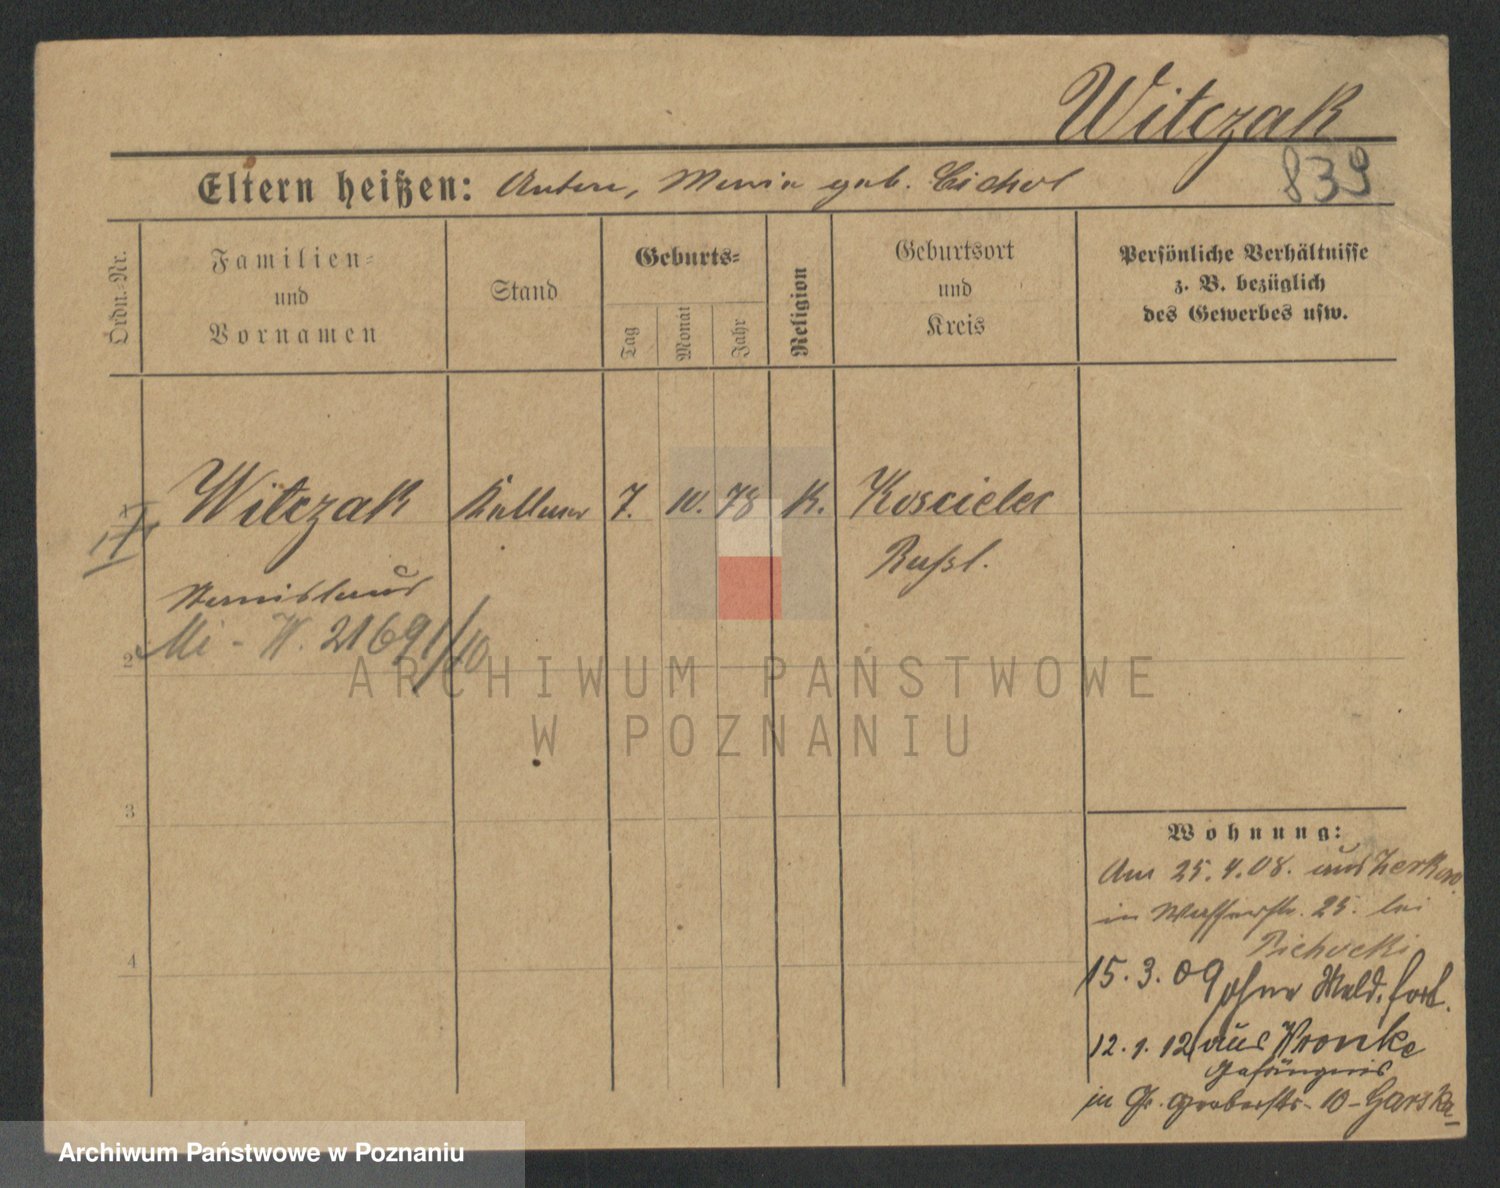 Witczak
839
Eltern heißen: Anton, Maria geb. Cichol
Ordn.-Nr.
Familien-
und
Vornamen
Stand
Geburts-
Tag
Monat
Jahr
Religion
Geburtsort
und
Kreis
Persönliche Verhältnisse
z. B. bezüglich
des Gewerbes usw.
1 Witczak Kellner 7. 10. 78 K. Koscielec
Russl.
Stanislaus
2 Mi - W. 21691/10
3
4
Wohnung:
Am 25.4.08. aus Zerkow
in Wasserstr. 25. bei
Cichocki
15.3.09 ohne Meld. fort.
12.1.12 aus Wronke
Gefängnis
in Gr. Gerberstr. 10 - Garska
ARCHIWUM PAŃSTWOWE
W POZNANIU
Archiwum Państwowe w Poznaniu